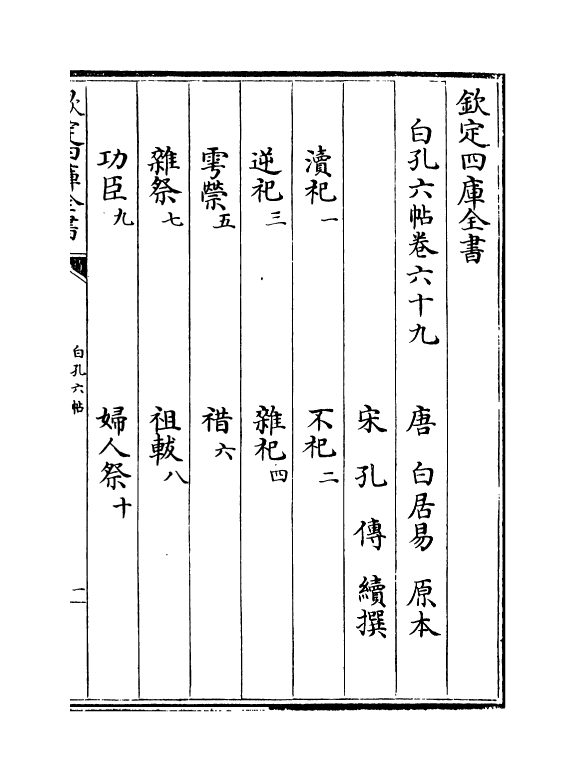 欽定四庫全書
白孔六帖卷六十九
唐 白居易 原本
宋 孔 傳 續撰
瀆祀一 不祀二
逆祀三 雜祀四
雩禜五 禇六
雜祭七 祖軷八
功臣九 婦人祭十
欽定四庫全書
白孔六帖